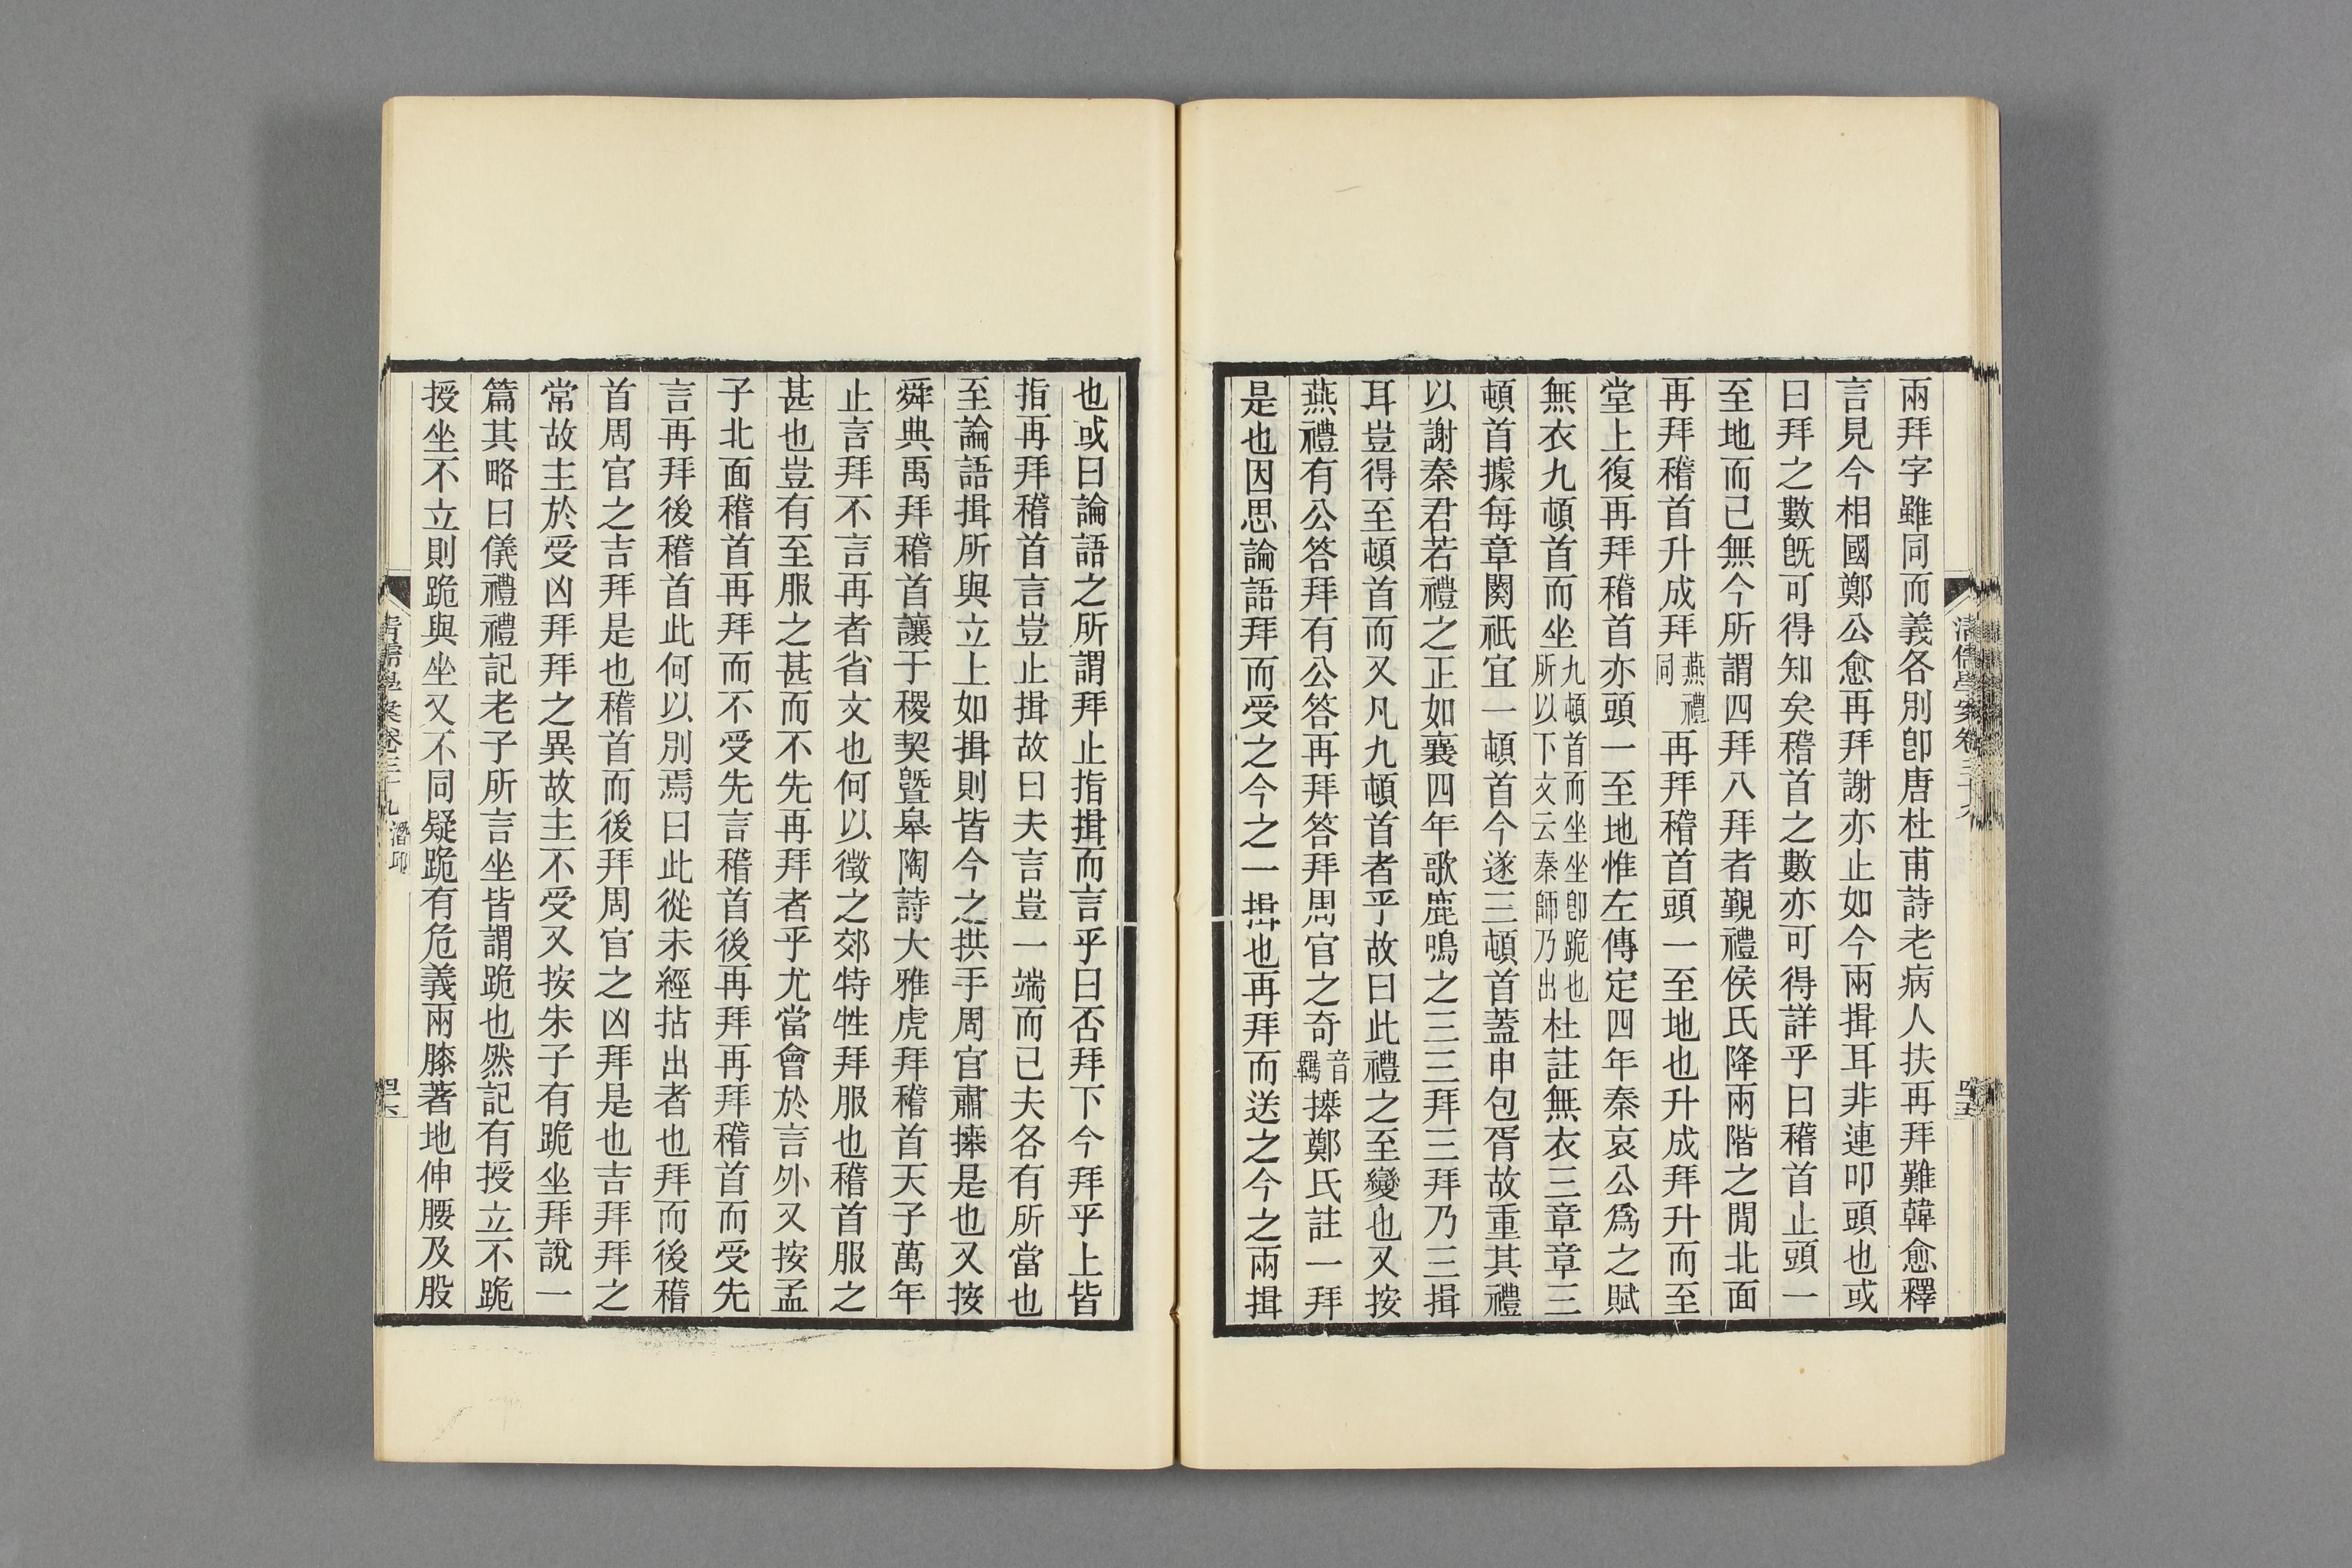 兩拜字雖同而義各別卽唐杜甫詩老病人扶再拜難韓愈釋
言見今相國鄭公愈再拜謝亦止如今兩揖耳非連叩頭也或
曰拜之數旣可得知矣稽首之數亦可得詳乎曰稽首止頭一
至地而已無今所謂四拜八拜者覲禮侯氏降兩階之閒北面
再拜稽首升成拜燕禮同再拜稽首頭一至地也升成拜升而至
堂上復再拜稽首亦頭一至地惟左傳定四年秦哀公爲之賦
無衣九頓首而坐九頓首而坐坐卽跪也所以下文云秦師乃出杜註無衣三章章三
頓首據每章闋祇宜一頓首今遂三頓首蓋申包胥故重其禮
以謝秦君若禮之正如襄四年歌鹿鳴之三三拜三拜乃三揖
耳豈得至頓首而又凡九頓首者乎故曰此禮之至變也又按
燕禮有公答拜有公答再拜答拜周官之奇音羈㨇鄭氏註一拜
是也因思論語拜而受之今之一揖也再拜而送之今之兩揖
清儒學案卷三十九
四十五
也或曰論語之所謂拜止指揖而言乎曰否拜下今拜乎上皆
指再拜稽首言豈止揖故曰夫言豈一端而已夫各有所當也
至論語揖所與立上如揖則皆今之拱手周官肅㨇是也又按
舜典禹拜稽首讓于稷契暨皋陶詩大雅虎拜稽首天子萬年
止言拜不言再者省文也何以徵之郊特牲拜服也稽首服之
甚也豈有至服之甚而不先再拜者乎尤當會於言外又按孟
子北面稽首再拜而不受先言稽首後再拜再拜稽首而受先
言再拜後稽首此何以別焉曰此從未經拈出者也拜而後稽
首周官之吉拜是也稽首而後拜周官之凶拜是也吉拜拜之
常故主於受凶拜拜之異故主不受又按朱子有跪坐拜說一
篇其略曰儀禮禮記老子所言坐皆謂跪也然記有授立不跪
授坐不立則跪與坐又不同疑跪有危義兩膝著地伸腰及股
清儒學案卷三十九 潛邱
四十六